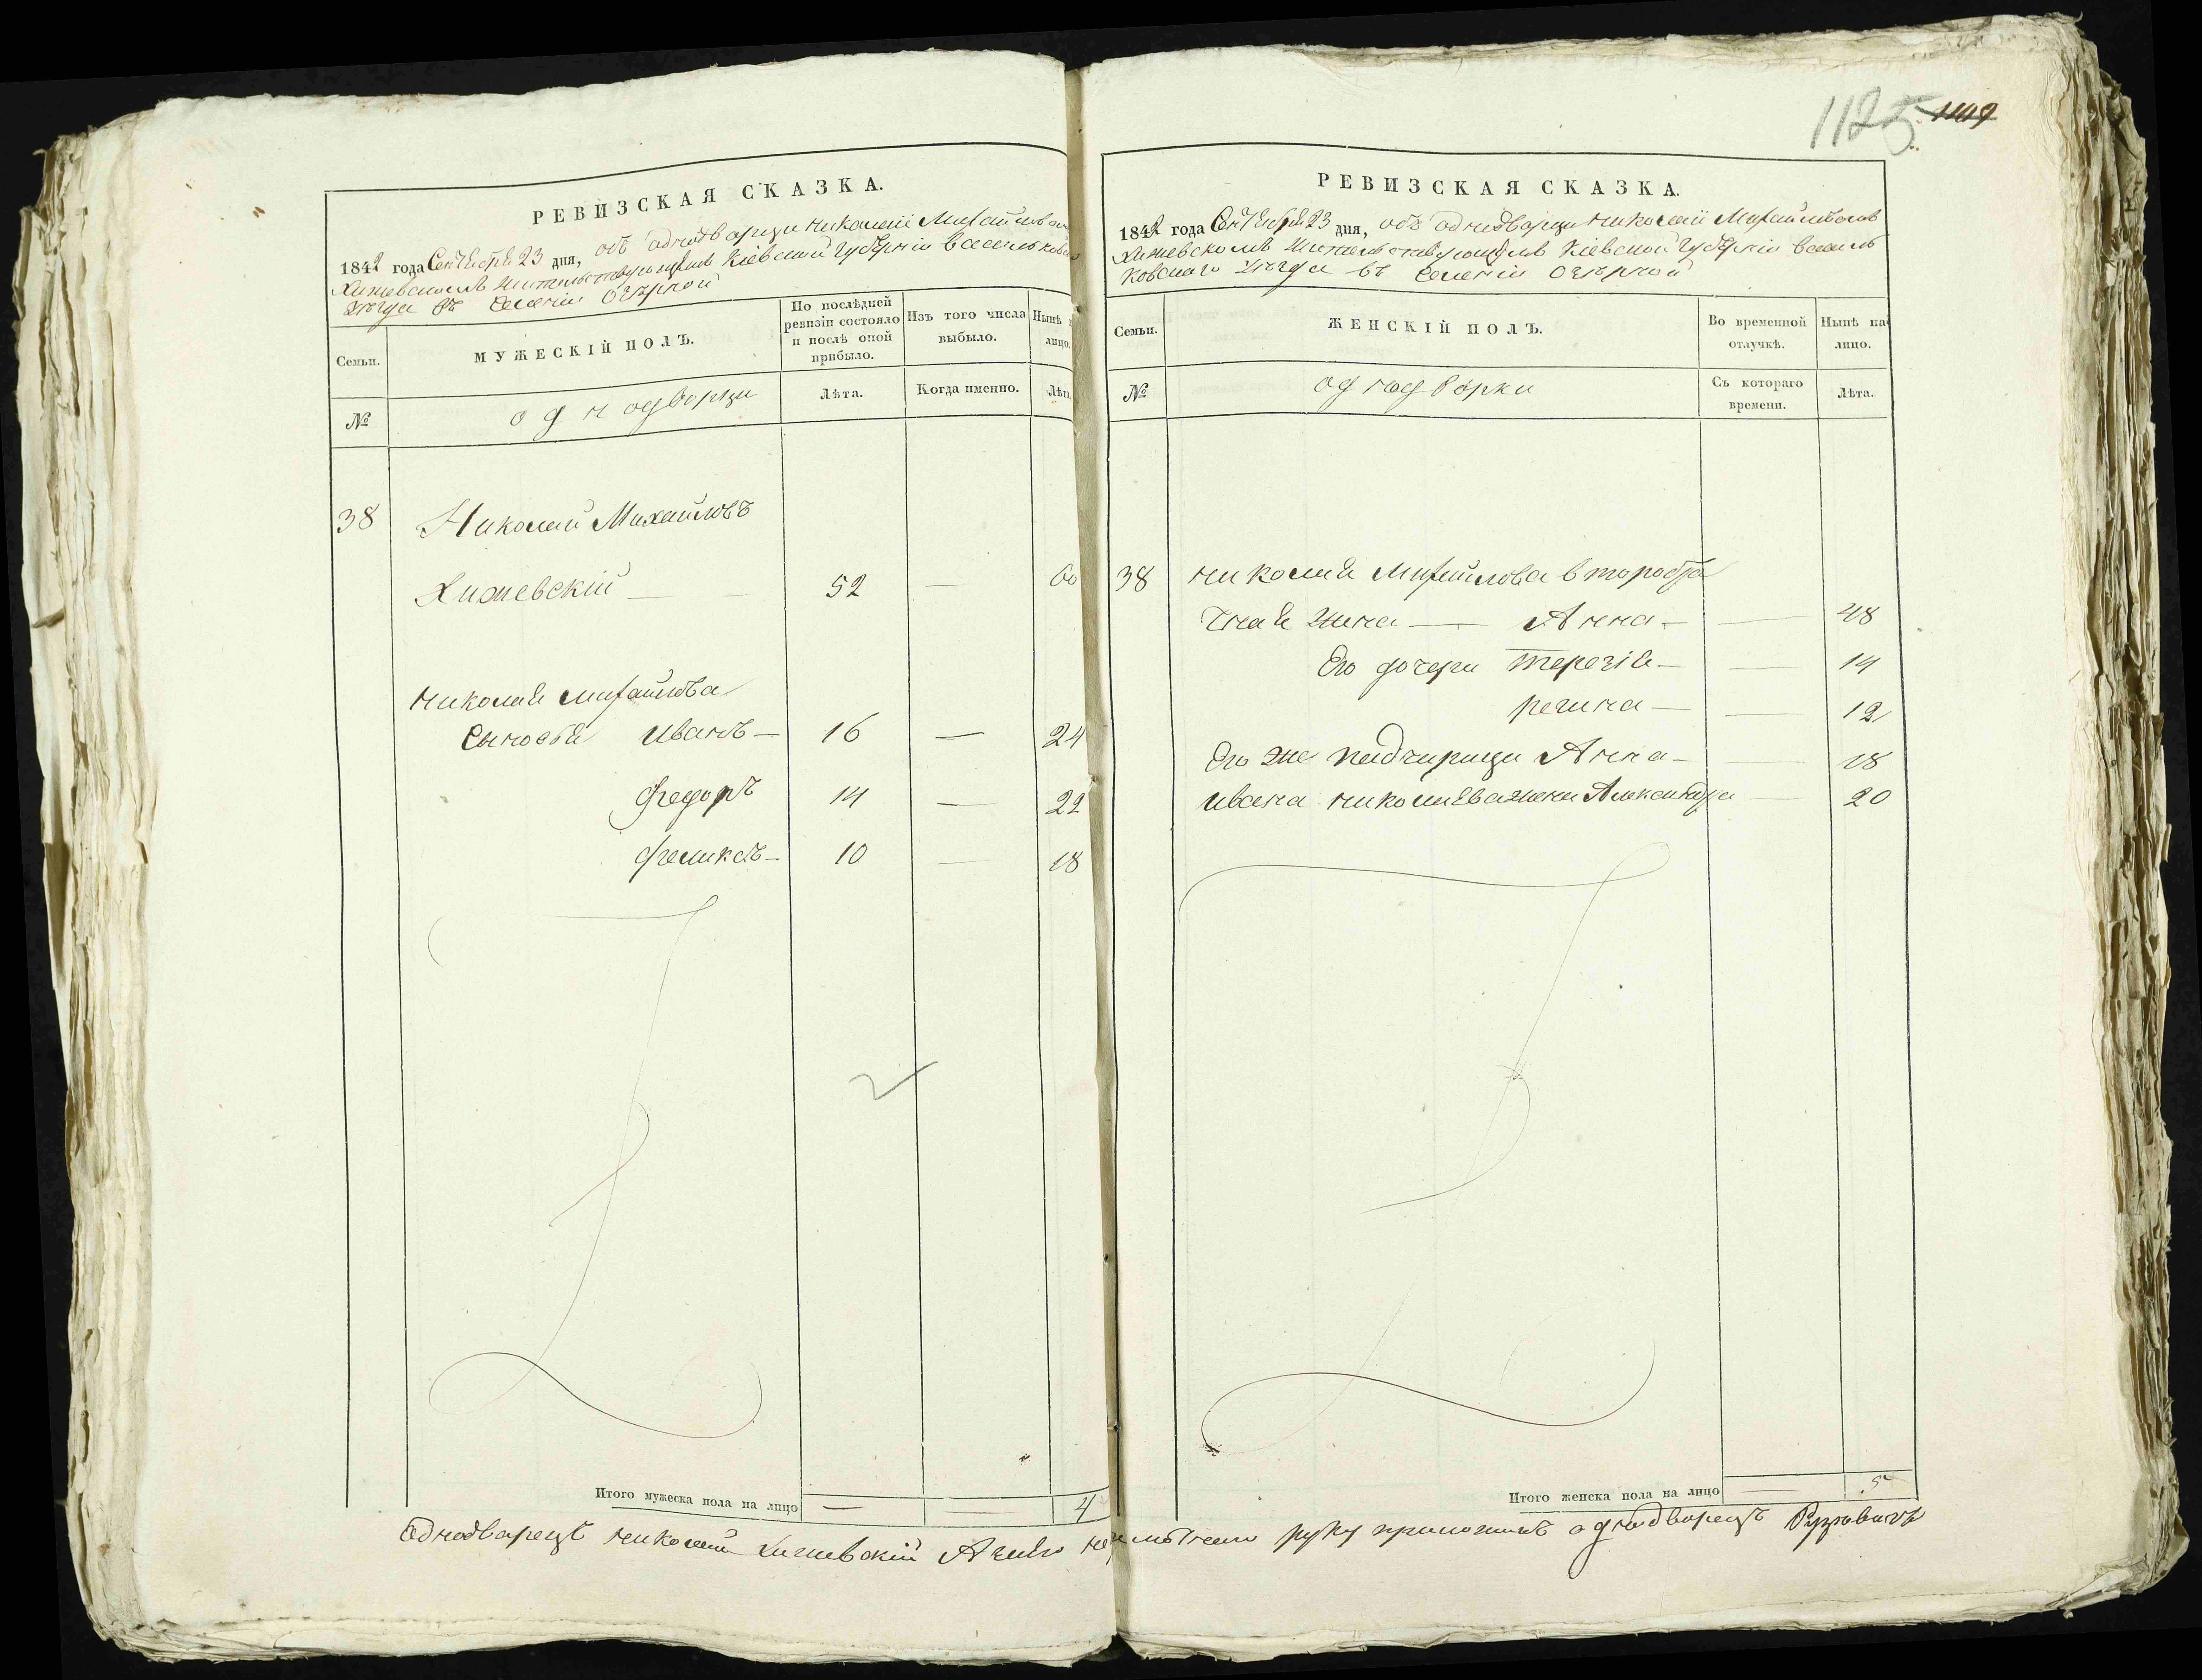 1125 1119
РЕВИЗСКАЯ СКАЗКА.
1842 года Сентября 23 дня, объ однодворци Николаи Михайлов
Хижевскомъ жительствующимъ Кіевской Губерніи Васильков
уезда въ селеніи Озѣрной
Семьи. МУЖЕСКІЙ ПОЛЪ. По послѣдней ревизіи состояло и послѣ оной прибыло. Изъ того числа выбыло. Нынѣ лицо.
№ однодворци Лѣта. Когда именно. Лѣта
38 Николай Михайловъ
Хижевскій — — 52 — 60
Николая Михайлова
Сыновья Иванъ — 16 — 24
Федоръ 14 — 22
Феликсъ — 10 — 18
Итого мужеска пола на лицо — — 4
РЕВИЗСКАЯ СКАЗКА.
1842 года Сентября 23 дня, объ однодворци Николаи Михайловомъ
Хижевскомъ жительствующимъ Кіевской Губерніи Василь
ковского уезда въ селеніи Озѣрной
Семьи. ЖЕНСКІЙ ПОЛЪ. Во временной отлучкѣ. Нынѣ на лицо.
№ однодворки Съ котораго времени. Лѣта.
38 Николая Михайлова второбра
чная жена — Анна — — 48
Его дочери Терезія — — 14
Регина — — 12
Его же падчирици Анна — — 18
Ивана Николаева жена Александра — 20
Итого женска пола на лицо — 5
Однодворецъ Николай Хижевскій А за его неуметнем руку приложилъ однодворецъ